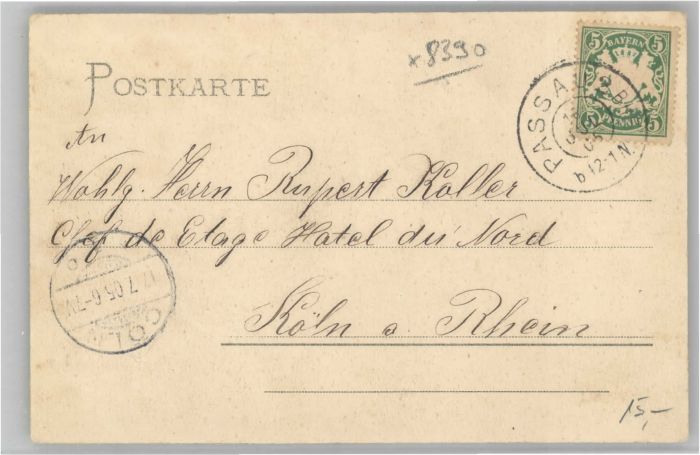 x8390
POSTKARTE
BAYERN
5 5
PFENNIG
5 5
PASSAU 2. B.
05
b 12-1 N.
An
Wohlg. Herrn Rupert Koller
Chef de Etage Hotel du Nord
Köln a. Rhein
12.7.05.6-7V
CÖLN
15,-